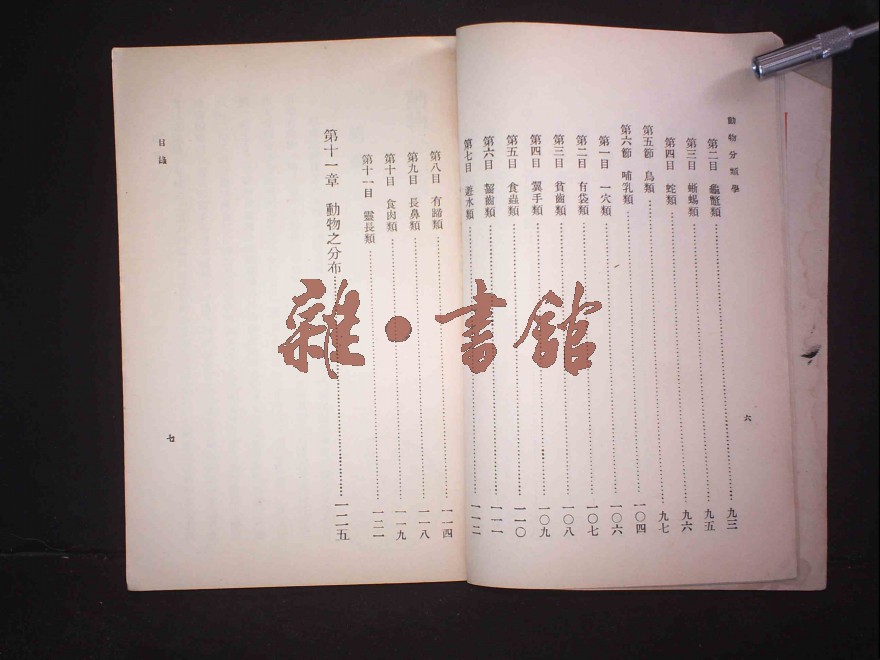 動物分類學
第二目 龜鼈類 九三
第三目 蜥蜴類 九五
第四目 蛇類 九六
第五節 鳥類 九七
第六節 哺乳類 一〇四
第一目 一穴類 一〇六
第二目 有袋類 一〇七
第三目 貧齒類 一〇八
第四目 翼手類 一〇九
第五目 食蟲類 一一〇
第六目 齧齒類 一一一
第七目 遊水類 一一二
六
第八目 有蹄類 一一四
第九目 長鼻類 一一八
第十目 食肉類 一一九
第十一目 靈長類 一二一
第十一章 動物之分布 一二五
目錄
七
雜·書館